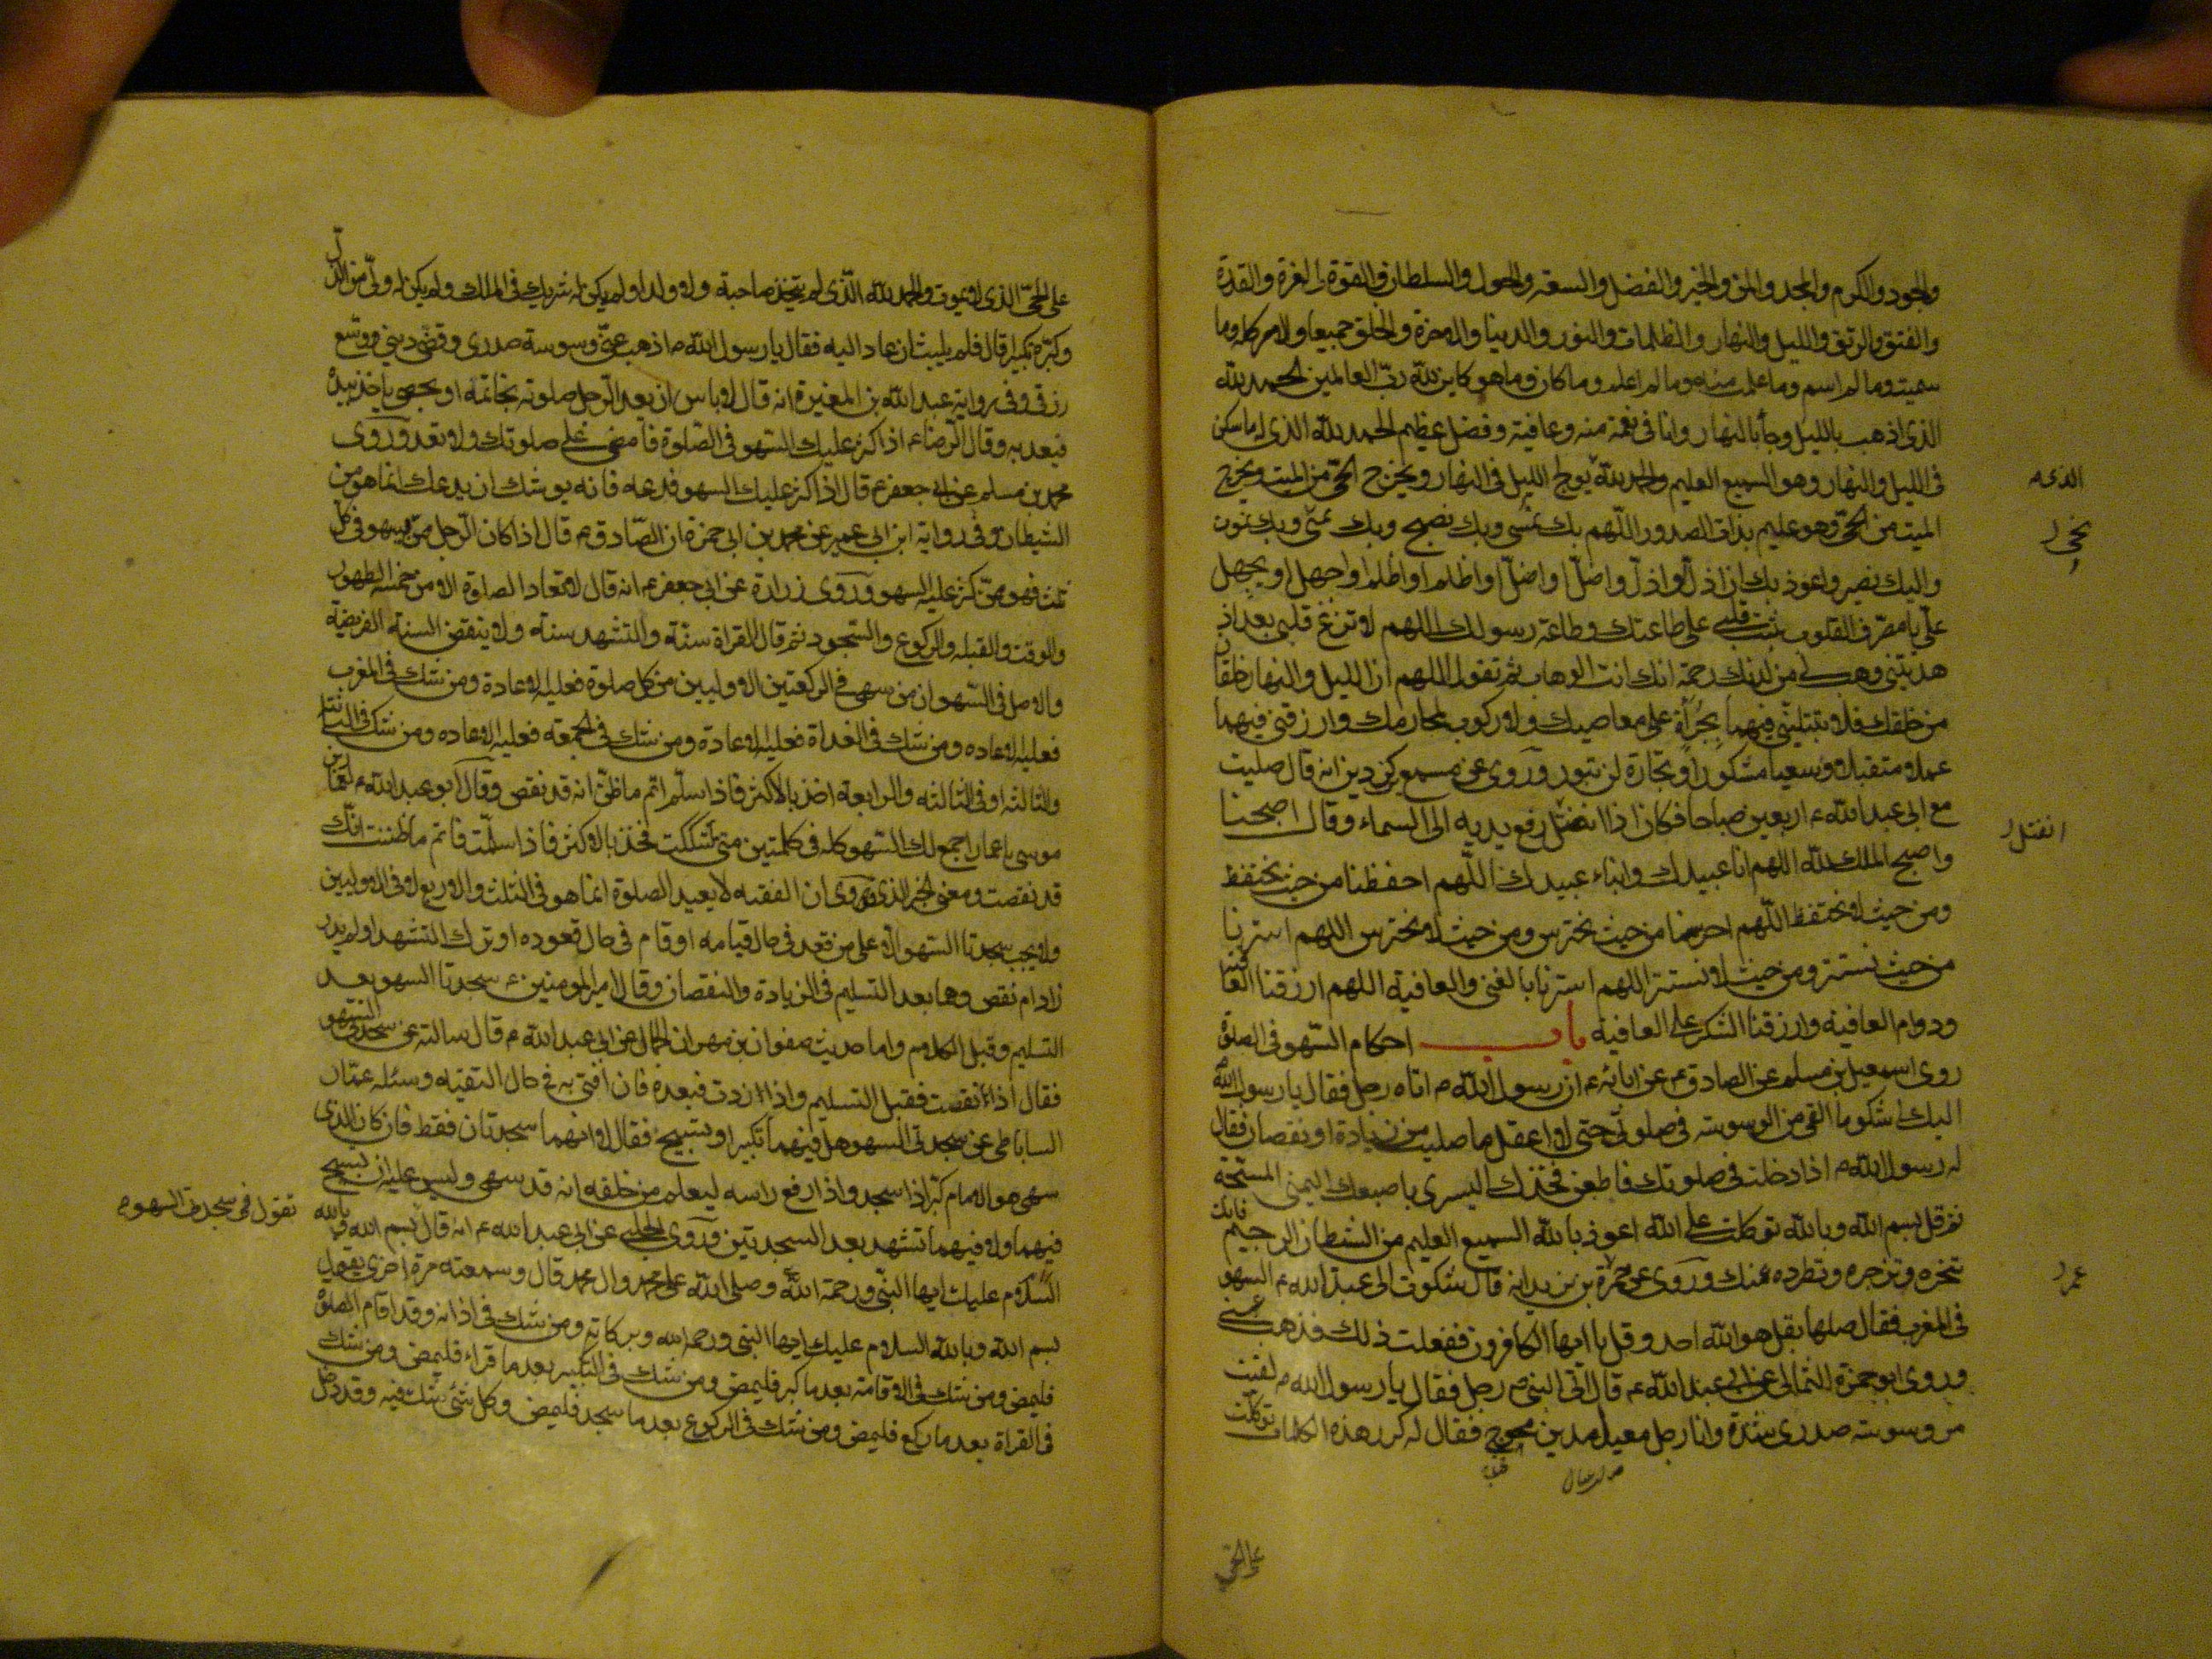 والجود والكرم والمجد والمن والخير والفضل والسعة والحول والسلطان والقوة والعزة والقدرة
والفتق والرتق والليل والنهار والظلمات والنور والدنيا والاخرة والخلق جميعا والامر كله وما
سميت وما لم اسم وما علمت منه وما لم اعلم وما كان وما هو كاين لله رب العالمين الحمد لله
الذى اذهب بالليل وجاء بالنهار وانا فى نعمة منه وعافية وفضل عظيم الحمد لله الذى له ما سكن
فى الليل والنهار وهو السميع العليم والحمد لله يولج الليل فى النهار ويخرج الحى من الميت ويخرج
الميت من الحى وهو عليم بذات الصدور اللهم بك نمسى وبك نصبح وبك نحيى وبك نموت
واليك نصير واعوذ بك ان اذل او اذل او اضل او اضل او اظلم او اظلم او اجهل او يجهل
على يا مصرف القلوب ثبت قلبى على طاعتك وطاعة رسولك اللهم لا تزغ قلبى بعد اذ
هديتنى وهب لى من لدنك رحمة انك انت الوهاب ثم تقول اللهم ان الليل والنهار خلقان
من خلقك فلا تبتلينى فيهما بجرأة على معاصيك ولا ركوب لمحارمك وارزقنى فيهما
عملا متقبلا وسعيا مشكورا وتجارة لن تبور وروى عن مسمع كردين انه قال صليت
مع ابى عبد الله ع اربعين صباحا فكان اذا انفتل رفع يديه الى السماء وقال اصبحنا
واصبح الملك لله اللهم انا عبيدك وابناء عبيدك اللهم احفظنا من حيث نحتفظ
ومن حيث لا نحتفظ اللهم احرسنا من حيث نحترس ومن حيث لا نحترس اللهم استرنا
من حيث نستتر ومن حيث لا نستتر اللهم استرنا بالغنى والعافية اللهم ارزقنا العافية
ودوام العافية وارزقنا الشكر على العافية باب احكام السهو فى الصلوة
روى اسمعيل بن مسلم عن الصادق ع عن ابائه ع ان رسول الله ص اتاه رجل فقال يا رسول الله
اليك اشكو ما القى من الوسوسة فى صلوتى حتى لا اعقل ما صليت من زيادة او نقصان فقال
له رسول الله ص اذا دخلت فى صلوتك فاطعن فخذك اليسرى باصبعك اليمنى المسبحة
ثم قل بسم الله وبالله توكلت على الله اعوذ بالله السميع العليم من الشيطان الرجيم فانك
تنحره وتزجره وتطرده عنك وروى عن حمزة بن يزيد انه قال شكوت الى عبد الله ع السهو
فى المغرب فقال صلها بقل هو الله احد وقل يا ايها الكافرون ففعلت ذلك فذهب عنى
وروى ابو حمزة الثمالى عن ابى عبد الله ع قال اتى النبى ص رجل فقال يا رسول الله ص لقيت
من وسوسة صدرى شدة وانا رجل معيل مدين محوج فقال له كرر هذه الكلمات توكلت
انفتل
على الحى
على الحى الذى لا يموت والحمد لله الذى لم يتخذ صاحبة ولا ولدا ولم يكن له شريك فى الملك ولم يكن له ولى من الذل
وكبره تكبيرا قال فلم يلبث ان عاد اليه فقال يا رسول الله ص اذهب عنى وسوسة صدرى وقضى دينى ووسع
رزقى وفى رواية عبد الله بن المغيرة انه قال لا باس ان يعد الرجل صلوته بخاتمه او بحصى ياخذ بيده
فيعد به وقال الرضا ع اذا كثر عليك السهو فى الصلوة فامض على صلوتك ولا تعد وروى
محمد بن مسلم عن ابى جعفر ع قال اذا كثر عليك السهو فدعه فانه يوشك ان يدعك انما هو من
الشيطان وفى رواية ابن ابى عمير عن محمد بن ابى حمزة ان الصادق ع قال اذا كان الرجل ممن يسهو فى كل
ثلث فهو ممن كثر عليه السهو وروى زرارة عن ابى جعفر ع انه قال لا تعاد الصلوة الا من خمسة الطهور
والوقت والقبلة والركوع والسجود ثم قال القراة سنة والتشهد سنة ولا ينقض السنة الفريضة
والاصل فى السهو ان من سهى فى الركعتين الاوليين من كل صلوة فعليه الاعادة ومن شك فى المغرب
فعليه الاعاده ومن شك فى الغداة فعليه الاعادة ومن شك فى الجمعة فعليه الاعاده ومن شك فى الثانية
والثالثة او فى الثالثه والرابعة اخذ بالاكثر فاذا سلم اتم ما ظن انه قد نقص وقال ابو عبد الله ع لعمار بن
موسى يا عمار اجمع لك السهو كله فى كلمتين متى شككت فخذ بالاكثر فاذا سلمت فاتم ما ظننت انك
قد نقصت ومعنى الخبر الذى روى ان الفقيه لا يعيد الصلوة انما هو فى الثلث والاربع لا فى الاوليين
ولا يجب سجدتا السهو الا على من قعد فى حال قيامه او قام فى حال قعوده او ترك التشهد او لم يدر
زاد ام نقص وهما بعد التسليم فى الزيادة والنقصان وقال امير المومنين ع سجدتا السهو بعد
التسليم وقبل الكلام واما حديث صفوان بن مهران الجمال عن ابى عبد الله ع قال سالته عن سجدتى السهو
فقال اذا نقصت فقبل التسليم واذا زدت فبعده فان افتى به فى حال التقيه وسئله عمار
الساباطى عن سجدتى السهو هل فيهما تكبير او تسبيح فقال لا انهما سجدتان فقط فان كان الذى
سهى هو الامام كبر اذا سجد واذا رفع راسه ليعلم من خلفه انه قد سهى وليس عليه ان يسبح
فيهما ولا فيهما تشهد بعد السجدتين وروى الحلبى عن ابى عبد الله ع انه قال بسم الله وبالله
السلام عليك ايها النبى ورحمة الله وصلى الله على محمد وال محمد قال وسمعته مرة اخرى يقول
بسم الله وبالله السلام عليك ايها النبى ورحمة الله وبركاته ومن شك فى اذانه وقد اقام الصلوة
فليمض ومن شك فى الاقامة بعد ما كبر فليمض ومن شك فى التكبير بعد ما قراء فليمض ومن شك
فى القراة بعد ما ركع فليمض ومن شك فى الركوع بعد ما سجد فليمض وكل شئ شك فيه وقد دخل
تقول فى سجدتى السهو